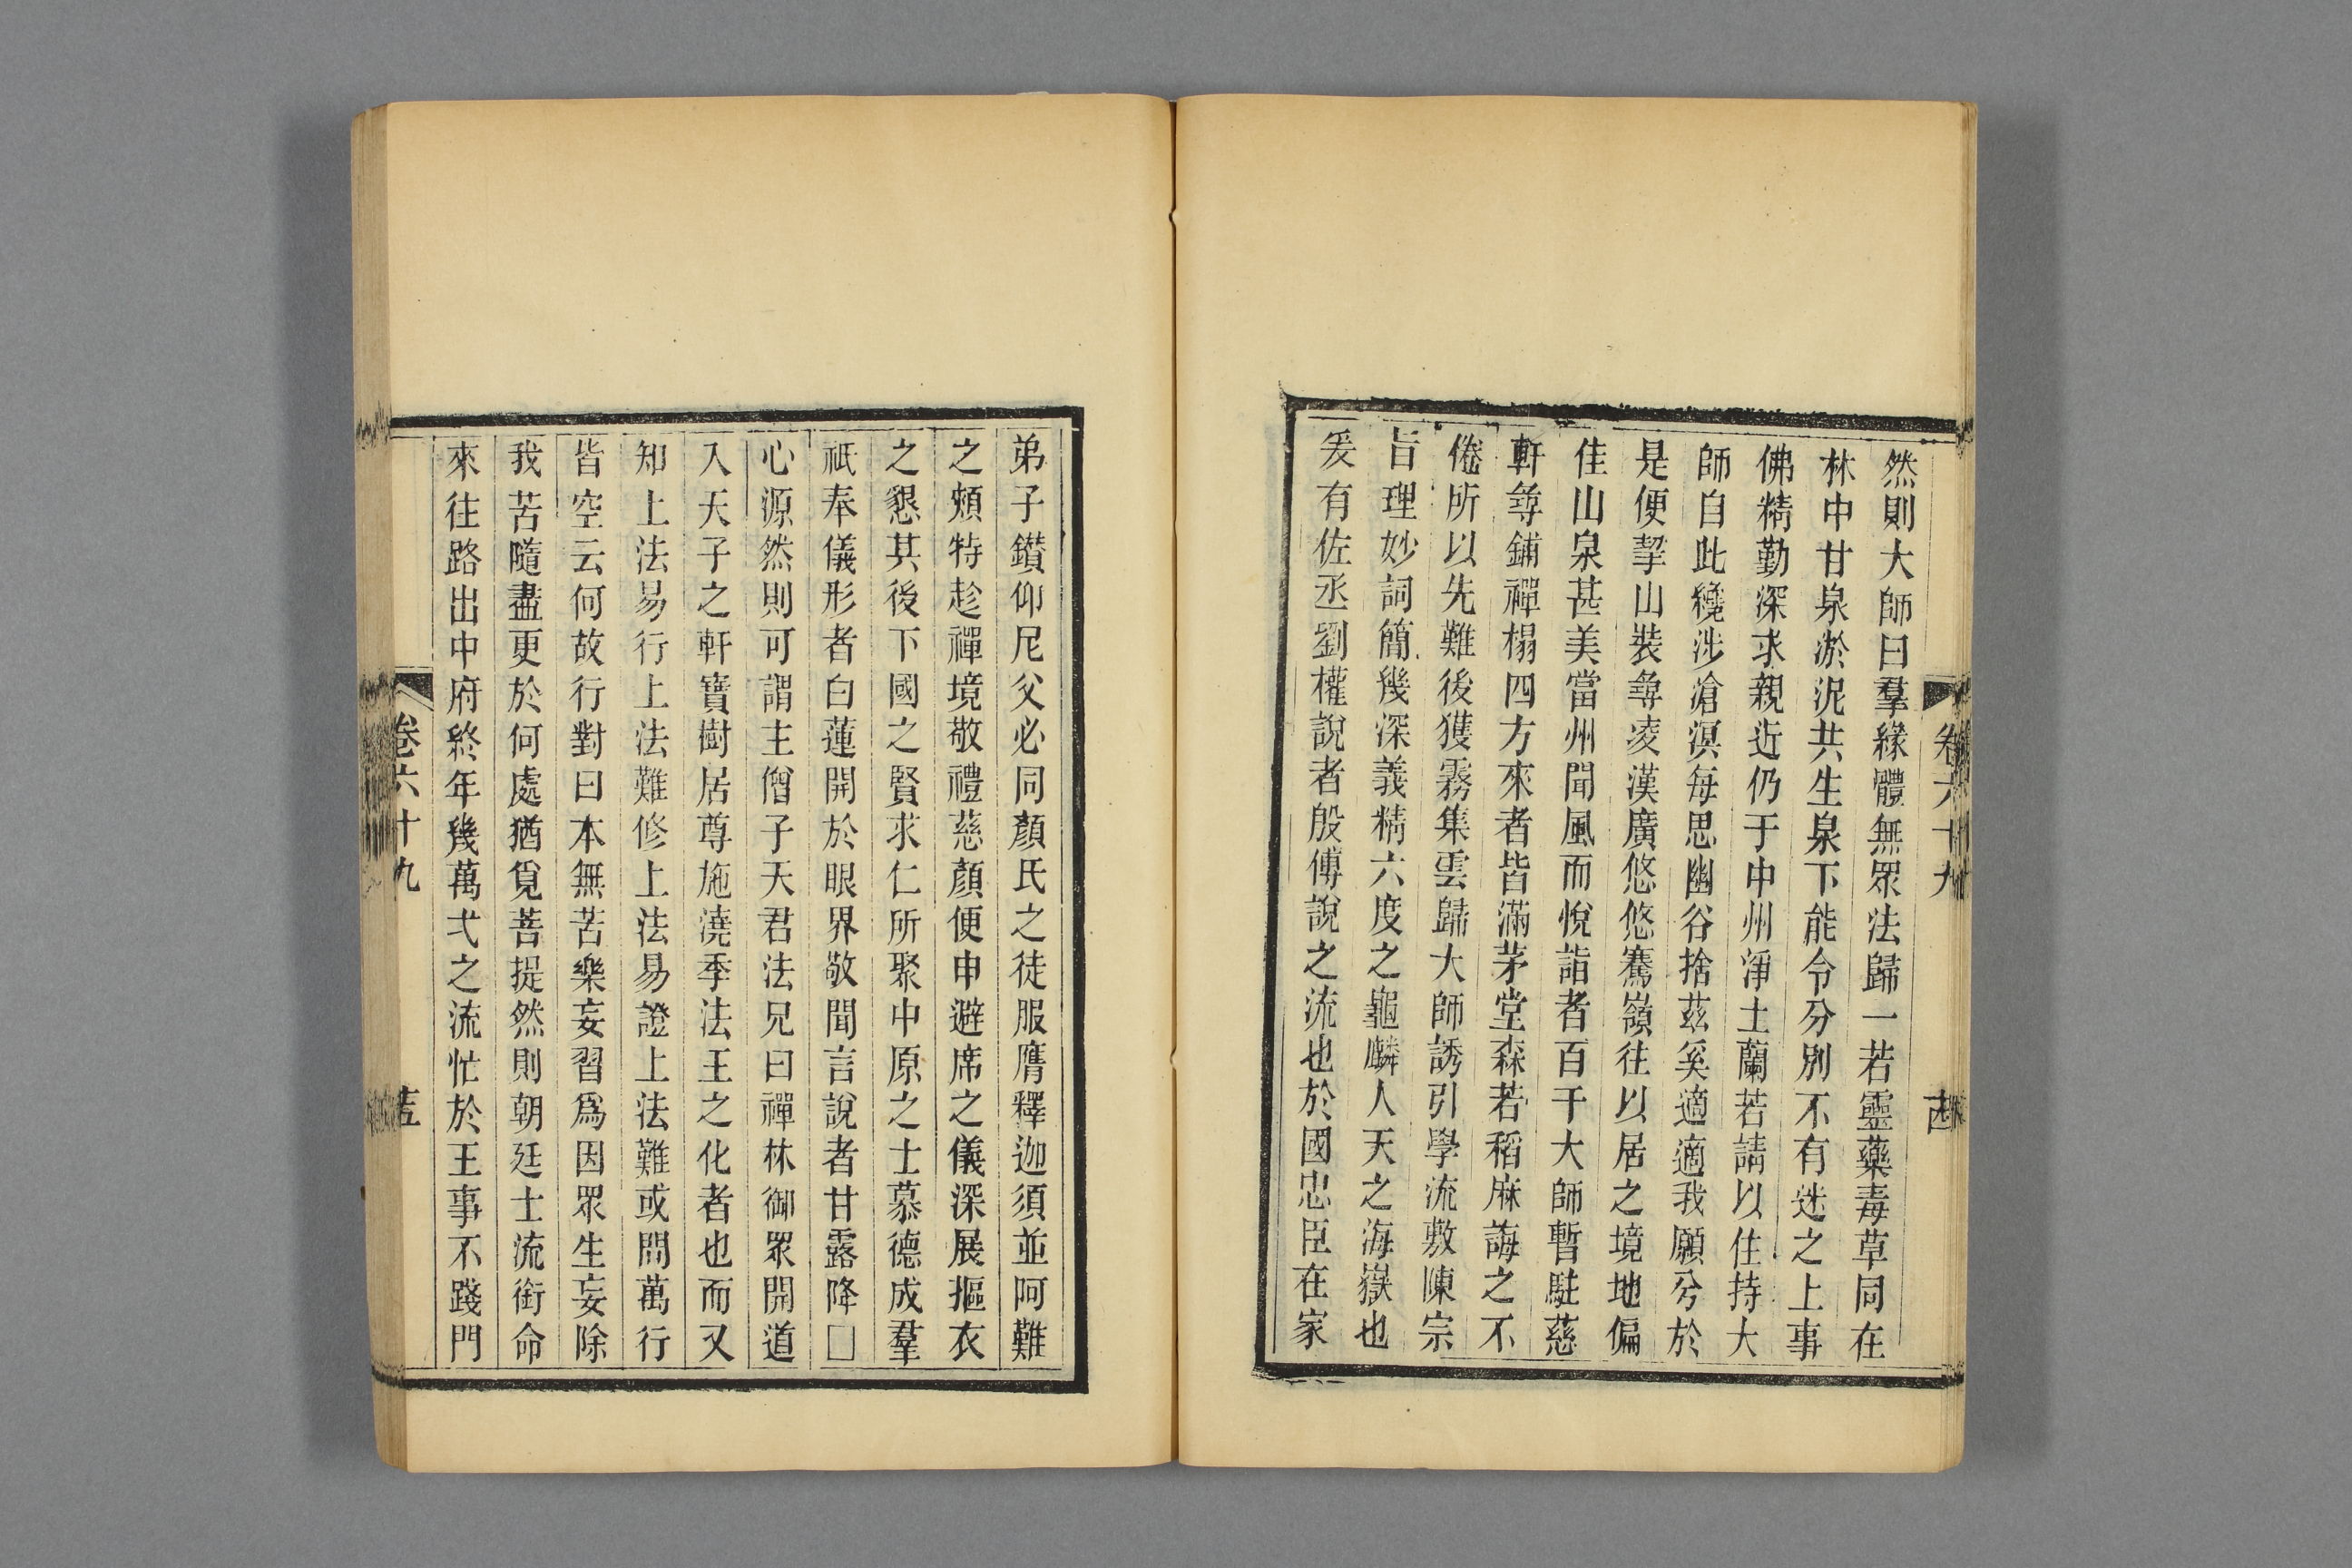 然則大師曰羣緣體無眾法歸一若靈藥毒草同在
林中甘泉淤泥共生泉下能令分別不有迷之上事
佛精勤深求親近仍于中州淨土蘭若請以住持大
師自此纔涉滄溟每思幽谷捨茲奚適適我願兮於
是便挈山裝尋凌漢廣悠悠騫嶺往以居之境地偏
佳山泉甚美當州聞風而悅詣者百千大師暫駐慈
軒尋鋪禪榻四方來者皆滿茅堂森若稻麻誨之不
倦所以先難後獲霧集雲歸大師誘引學流敷陳宗
旨理妙詞簡幾深義精六度之龜麟人天之海嶽也
爰有佐丞劉權說者殷傅說之流也於國忠臣在家
弟子鑽仰尼父必同顏氏之徒服膺釋迦須並阿難
之頰特趁禪境敬禮慈顏便申避席之儀深展摳衣
之懇其後下國之賢求仁所聚中原之士慕德成羣
祇奉儀形者白蓮開於眼界敬聞言說者甘露降□
心源然則可謂主僧子天君法兄曰禪林御眾開道
入天子之軒寶樹居尊施澆季法王之化者也而又
知上法易行上法難修上法易證上法難或問萬行
皆空云何故行對曰本無苦樂妄習爲因眾生妄除
我苦隨盡更於何處猶覓菩提然則朝廷士流銜命
來往路出中府終年幾萬弌之流忙於王事不踐門
卷六十九